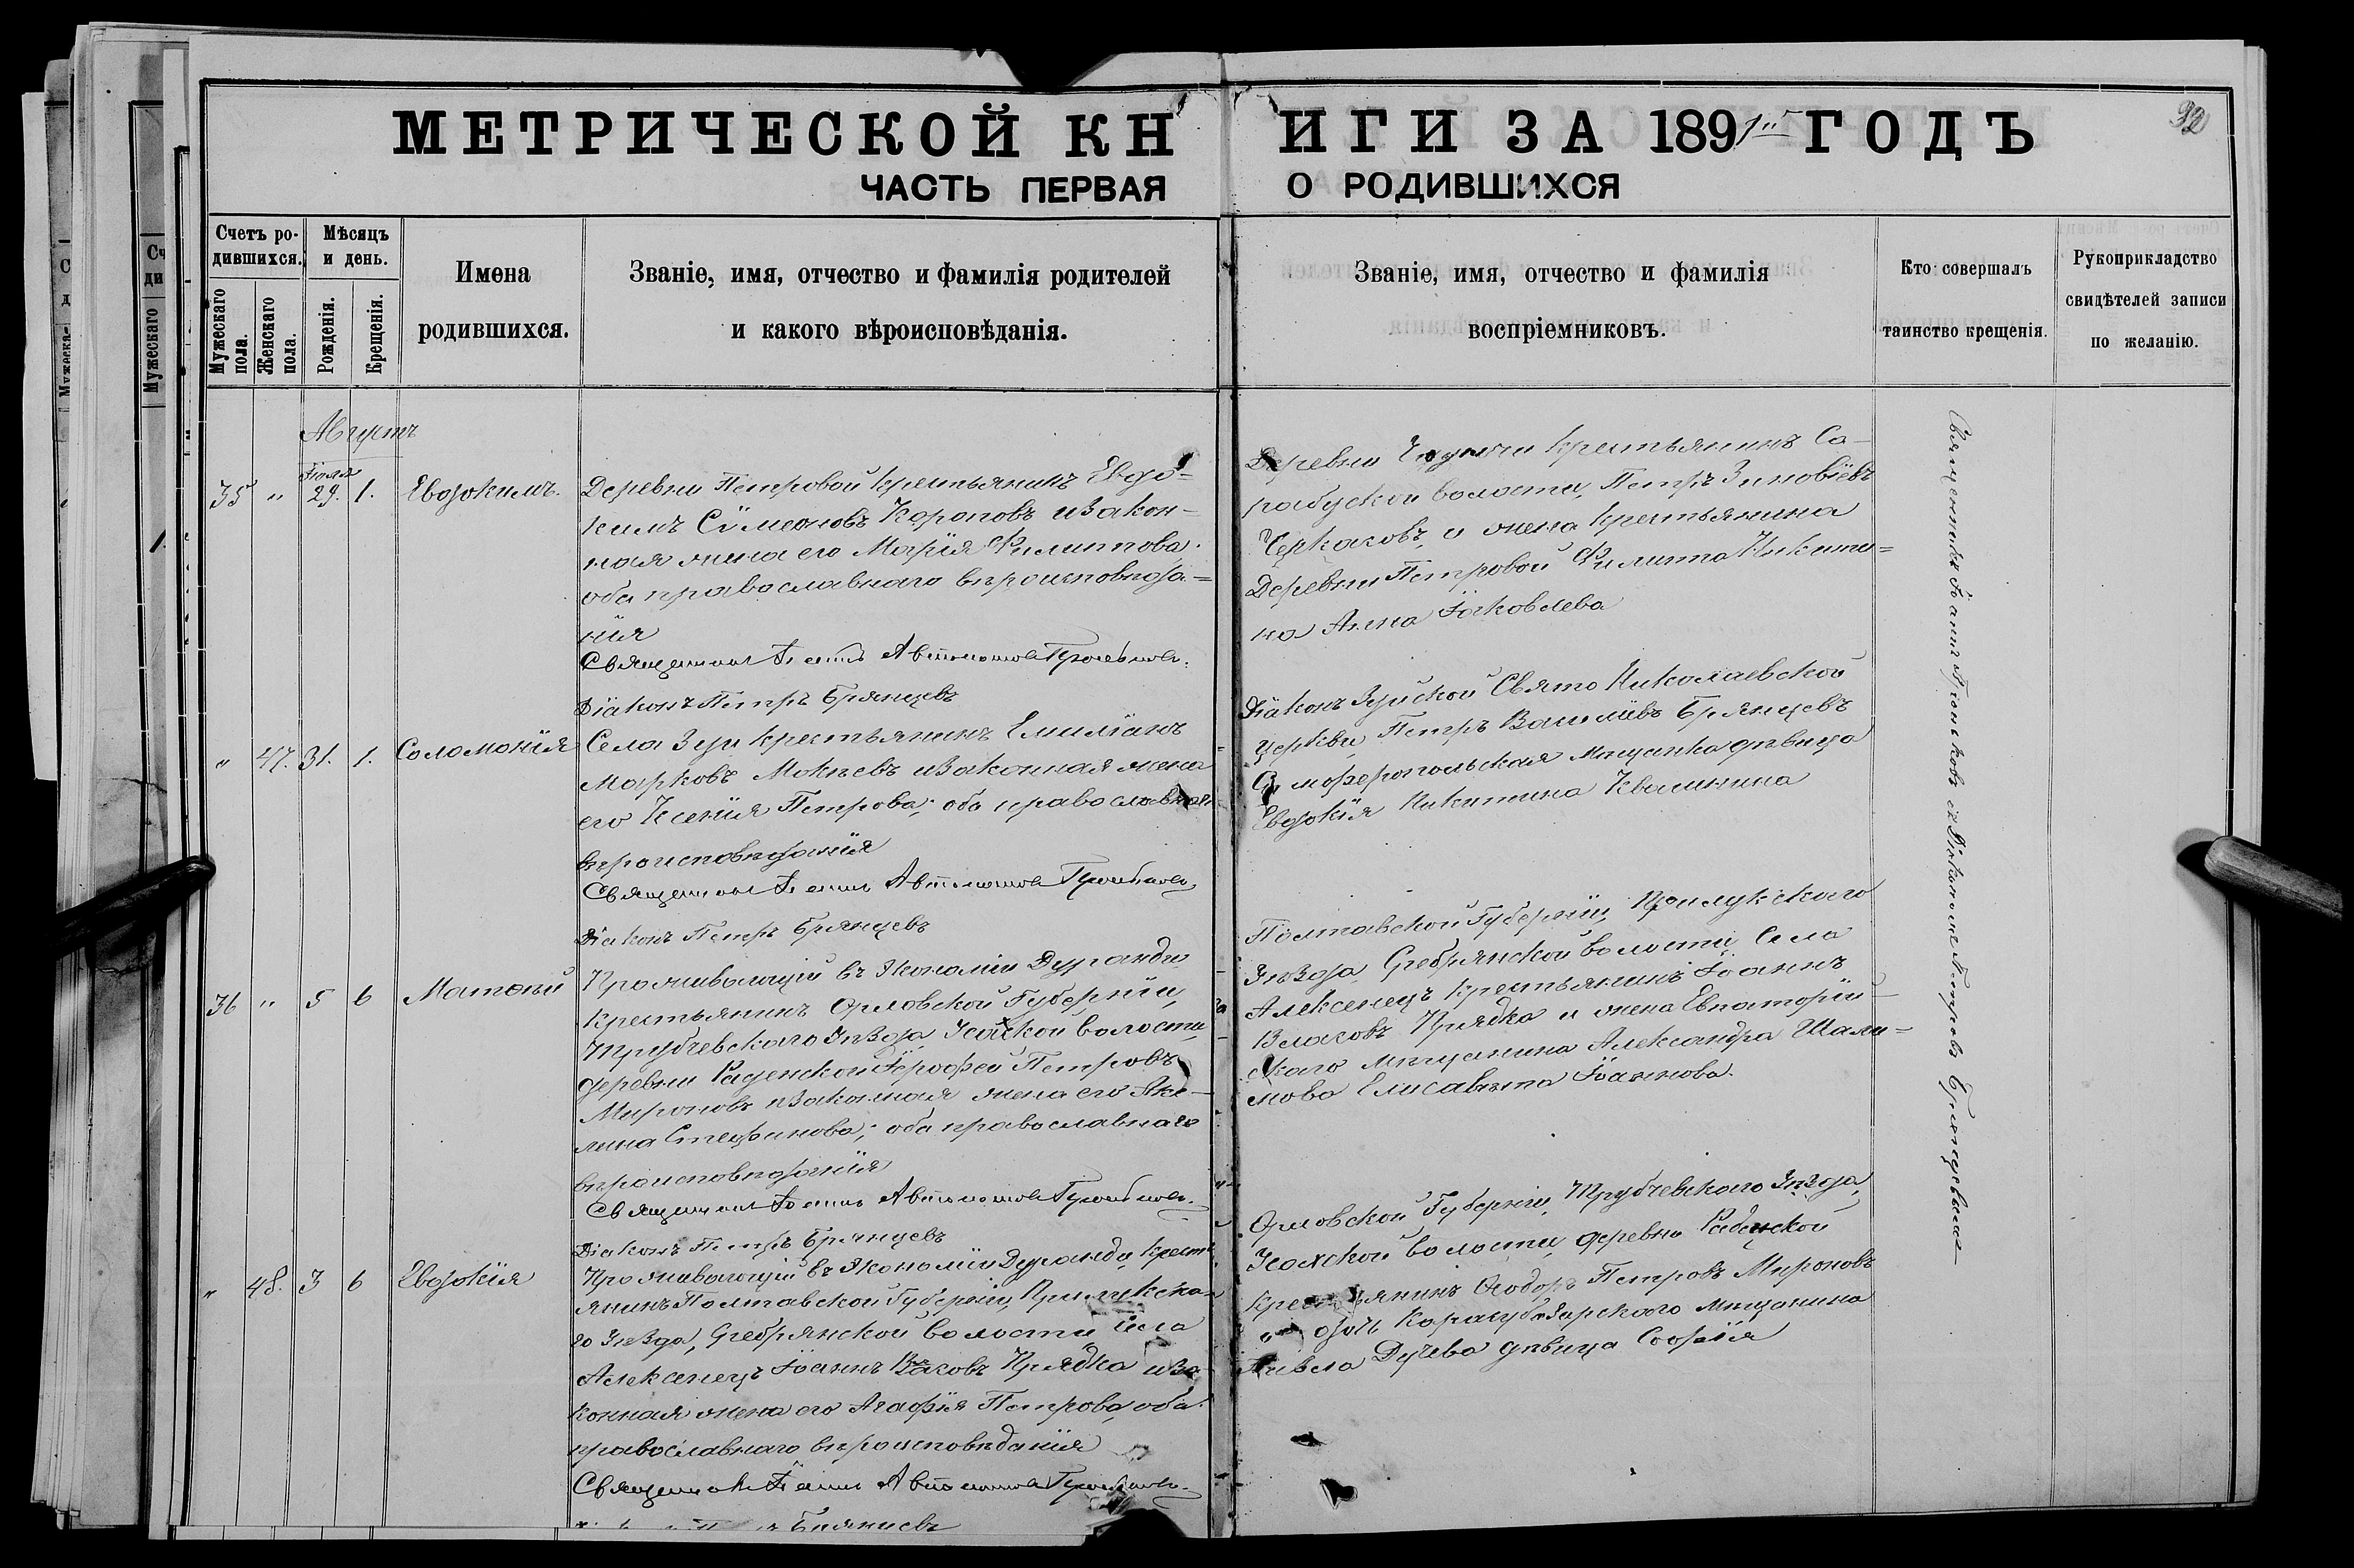 МЕТРИЧЕСКОЙ КНИГИ ЗА 1891 ГОДЪ
92
ЧАСТЬ ПЕРВАЯ О РОДИВШИХСЯ
Счетъ ро-
дившихся.
Мужескаго
пола.
Женскаго
пола.
Мѣсяцъ
и день.
Рожденія.
Крещенія.
Имена
родившихся.
Званіе, имя, отчество и фамилія родителей
и какого вѣроисповѣданія.
Званіе, имя, отчество и фамилія
воспріемниковъ.
Кто совершалъ
таинство крещенія.
Рукоприкладство
свидѣтелей записи
по желанію.
Августъ
Іюля
35 " 29. 1. Евдокимъ.
Деревни Петровой крестьянинъ Евдо-
кимъ Сѵмеоновъ Короповъ и закон-
ная жена его Марія Филиппова;
оба православнаго вѣроисповѣда-
нія
Священникъ Іоаннъ
Діаконъ Петръ Брянцевъ
Деревни крестьянинъ Са-
рабузской волости, Петръ Зиновіевъ
Черкасовъ, и жена крестьянина
Деревни Петровой Филиппа Никити-
на Анна Іаковлева
" 47. 31. 1. Соломонія
Села Зуи крестьянинъ Емиліанъ
Марковъ Мокѣевъ и законная жена
его Ксенія Петрова; оба православнаго
вѣроисповѣданія
Священникъ Іоаннъ
Діаконъ Петръ Брянцевъ
Діаконъ Зуйской Свято Николаевской
церкви, Петръ Василіевъ Брянцевъ
Симферопольская мѣщанка дѣвица
Евдокія Никитина Квашнина
36 " 5 6 Матѳей
Проживающій въ Экономіи Дуранди
крестьянинъ Орловской Губерніи,
Трубчевскаго Уѣзда, Усохской волости,
деревни Іероѳей Петровъ
Мироновъ и законная жена его Аки-
лина Стефанова; оба православнаго
вѣроисповѣданія
Священникъ Іоаннъ
Діаконъ Петръ Брянцевъ
Полтавской Губерніи, Прилукскаго
Уѣзда, Сребрянской волости, Села
Алексенецъ крестьянинъ Іоаннъ
Власовъ Прядка и жена Евпаторій-
скаго мѣщанина Александра Шали-
мова Елисавета Іоаннова.
" 48. 3 6 Евдокія
Проживающій въ Экономіи Дуранди, крест-
янинъ Полтавской Губерніи, Прилукска-
го Уѣзда, Сребрянской волости Села
Алексенецъ Іоаннъ Власовъ Прядка и за-
конная жена его Агафія Петрова, оба
православнаго вѣроисповѣданія
Священникъ Іоаннъ
Брянцевъ
Орловской Губерніи, Трубчевскаго Уѣзда,
Усохской волости, деревни
крестьянинъ Ѳеодоръ Петровъ Мироновъ
и дочь Карасубазарскаго мѣщанина
Павла дѣвица Софія
Священникъ Іоаннъ съ Діакономъ Петромъ Брянцевымъ